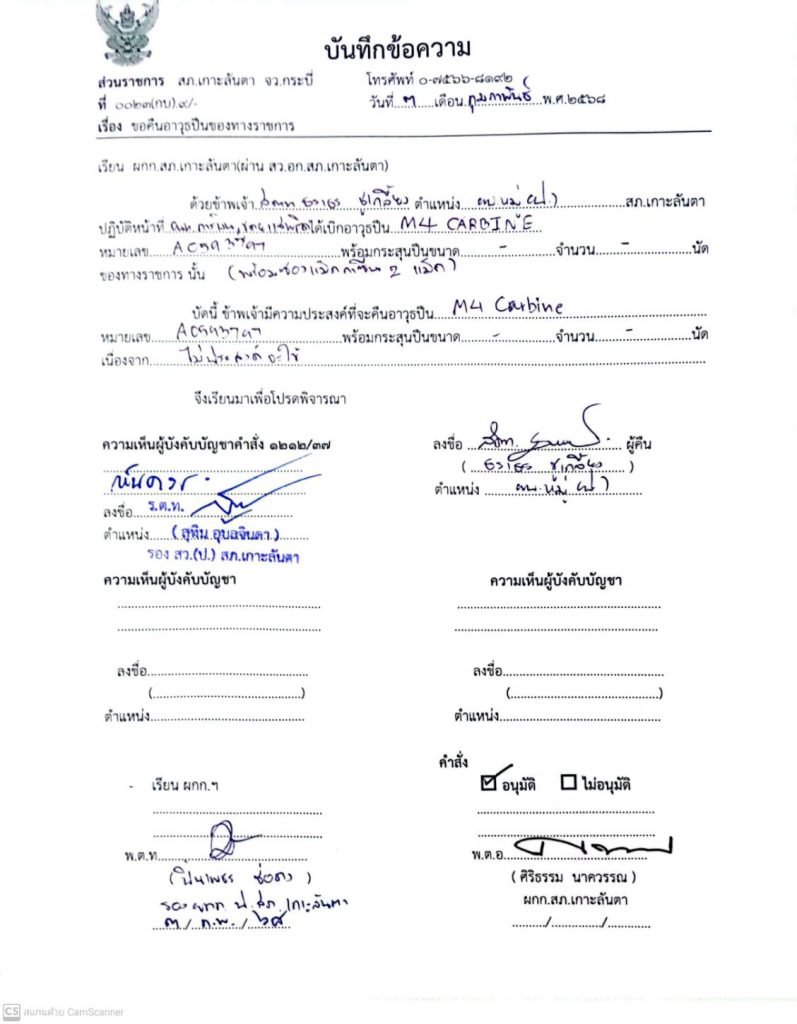 บันทึกข้อความ
ส่วนราชการ สภ.เกาะลันตา จว.กระบี่ โทรศัพท์ ๐-๗๕๖๖-๘๑๙๒
ที่ ๐๐๒๓(กบ).๙/- วันที่ ๓ เดือน กุมภาพันธ์ พ.ศ.๒๕๖๘
เรื่อง ขอคืนอาวุธปืนของทางราชการ
เรียน ผกก.สภ.เกาะลันตา(ผ่าน สว.อก.สภ.เกาะลันตา)
ด้วยข้าพเจ้า ตำแหน่ง ผบ.หมู่ (ป.) สภ.เกาะลันตา
ปฏิบัติหน้าที่ ได้เบิกอาวุธปืน M4 CARBINE
หมายเลข พร้อมกระสุนปืนขนาด - จำนวน - นัด
ของทางราชการ นั้น (พร้อมซองแม็กกาซีน 2 แม็ค)
บัดนี้ ข้าพเจ้ามีความประสงค์ที่จะคืนอาวุธปืน M4 Carbine
หมายเลข พร้อมกระสุนปืนขนาด - จำนวน - นัด
เนื่องจาก ไม่ประสงค์จะใช้
จึงเรียนมาเพื่อโปรดพิจารณา
ความเห็นผู้บังคับบัญชาคำสั่ง ๑๒๑๒/๓๗ ลงชื่อ ผู้คืน
เห็นควร
ตำแหน่ง ผบ.หมู่ (ป.)
ลงชื่อ ร.ต.ท.
ตำแหน่ง (สุทิน อุบลจินดา)
รอง สว.(ป.) สภ.เกาะลันตา
ความเห็นผู้บังคับบัญชา ความเห็นผู้บังคับบัญชา
ลงชื่อ ลงชื่อ
( ) ( )
ตำแหน่ง ตำแหน่ง
คำสั่ง
- เรียน ผกก.ฯ ☑ อนุมัติ ☐ ไม่อนุมัติ
พ.ต.ท. พ.ต.อ.
( ศิริธรรม นาควรรณ )
รอง ผกก.ป.สภ.เกาะลันตา ผกก.สภ.เกาะลันตา
๓ / ก.พ. / ๖๘ / /
CS สแกนด้วย CamScanner